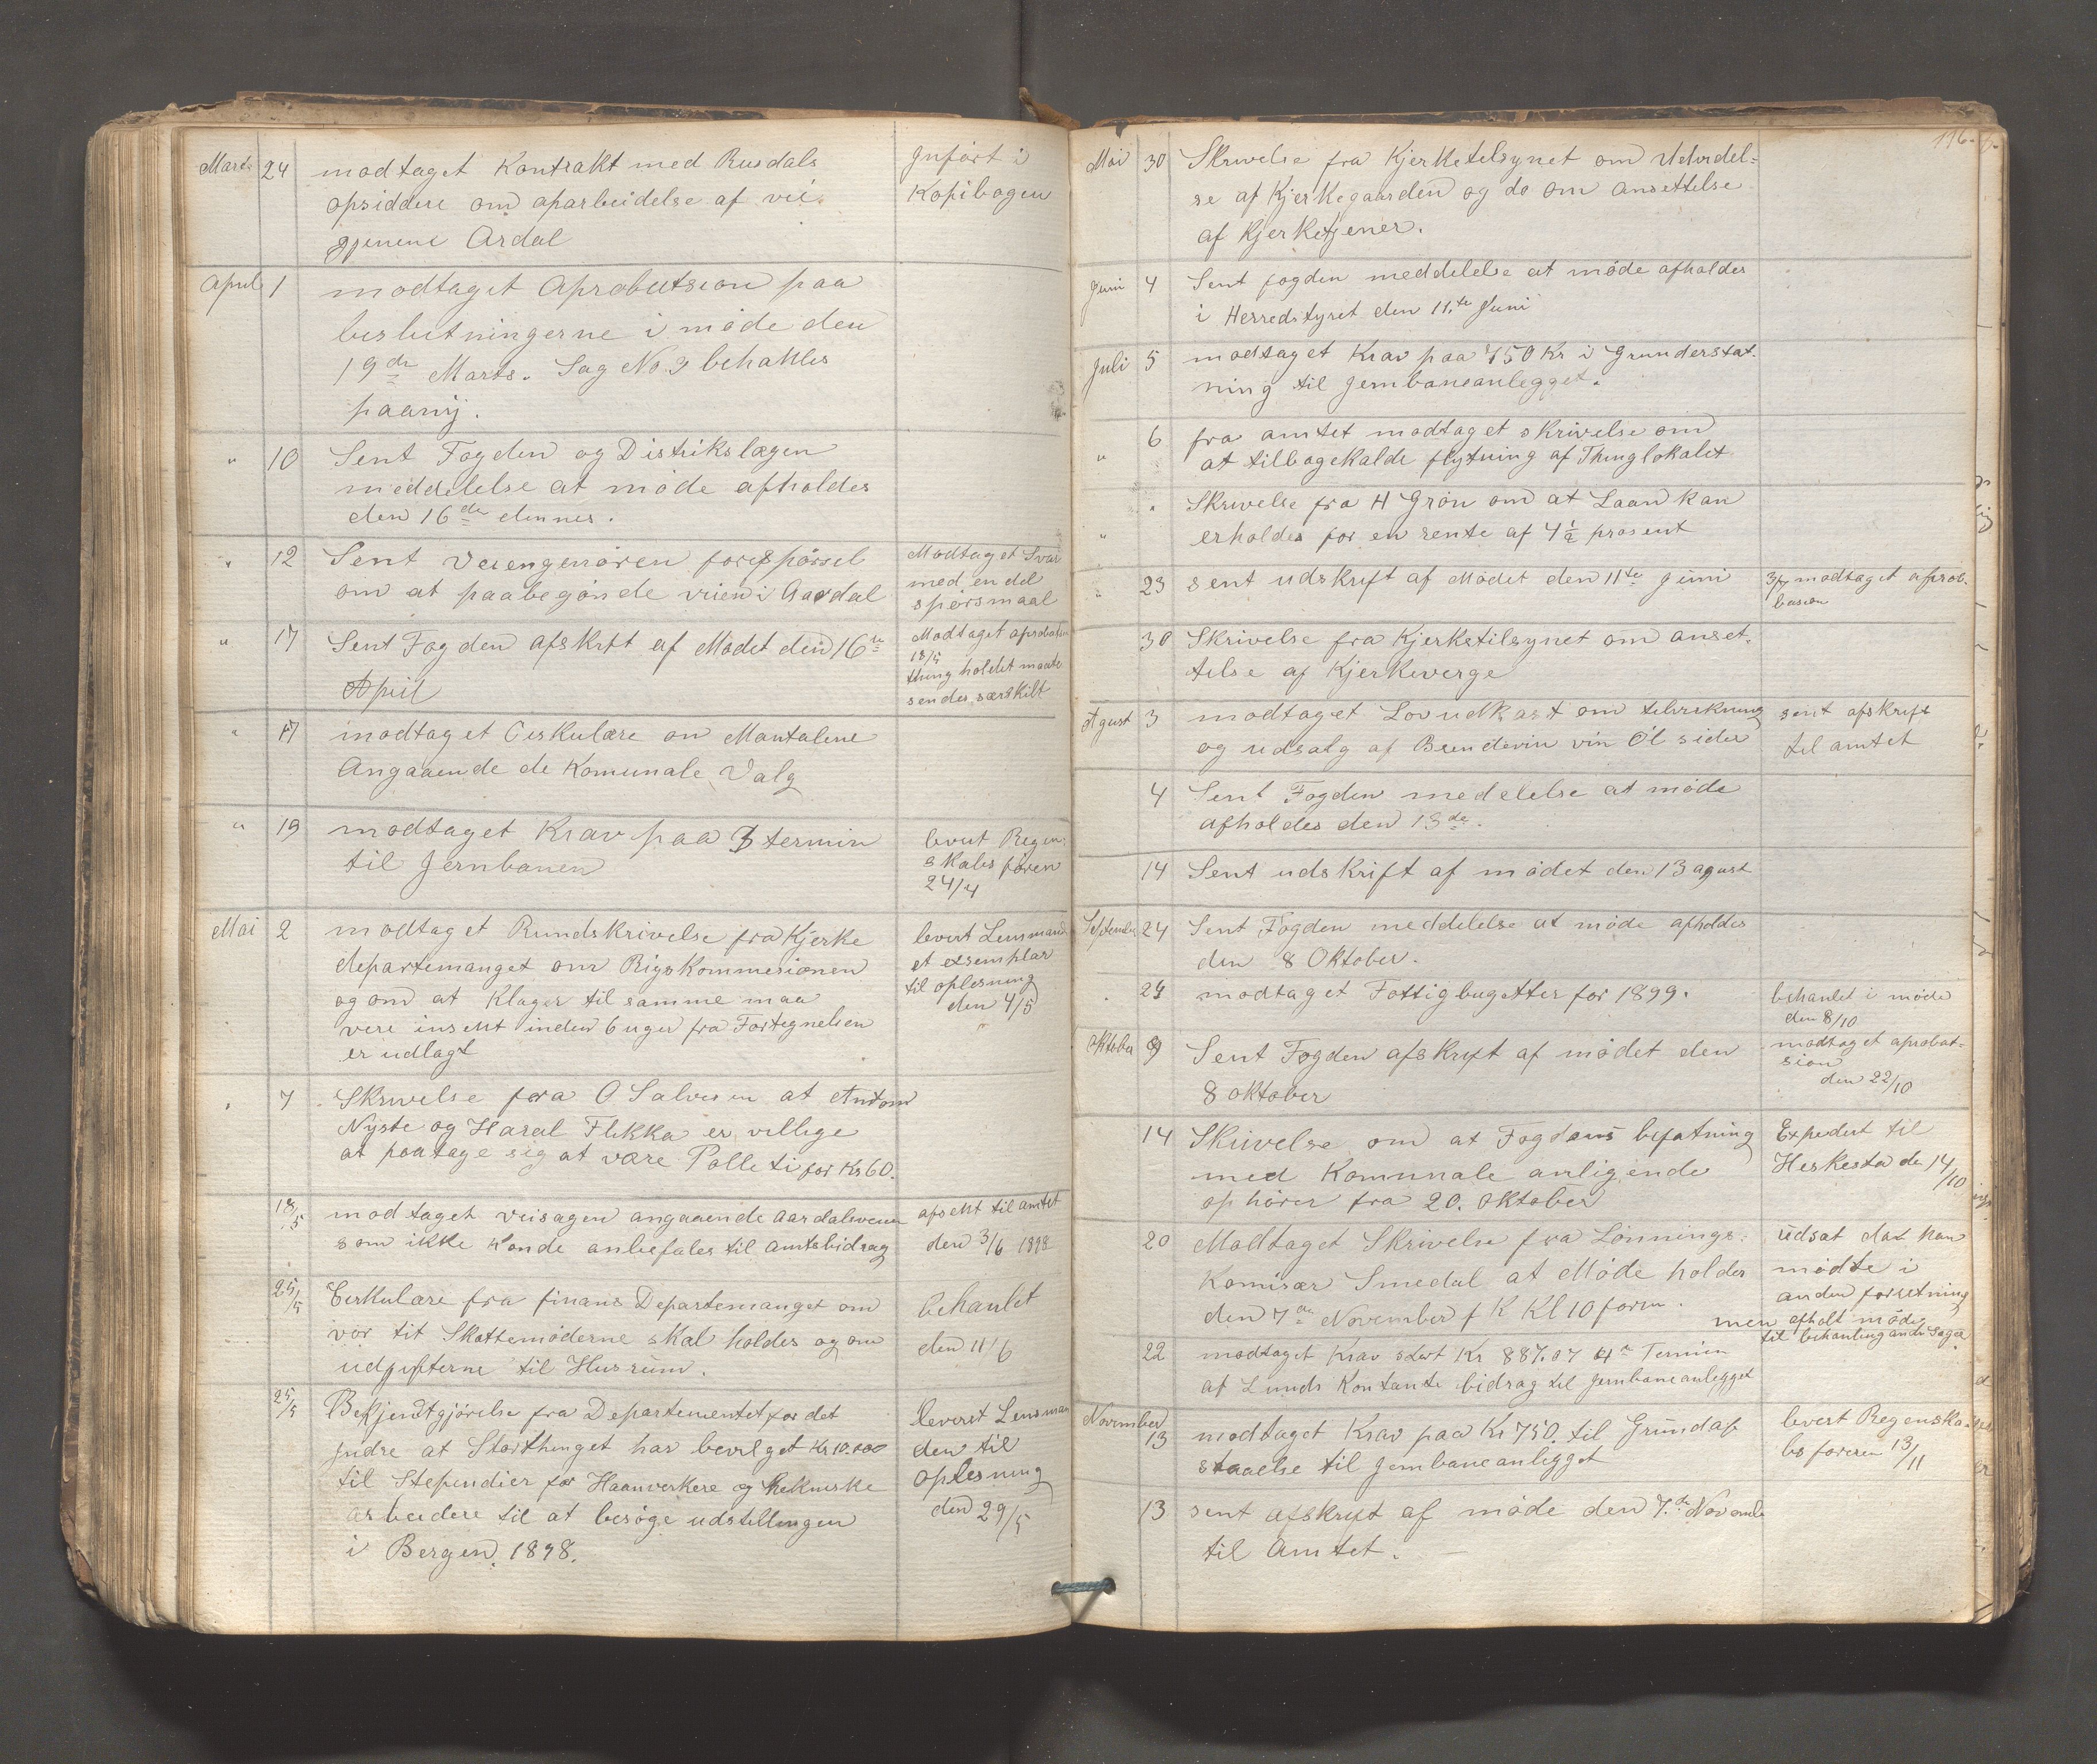 Marts 24 modtaget Kontrakt med Rusdals
opsiddere om oparbeidelse af vei
gjenem Ardal
Inført i
Kopibogen
April 1 modtaget Aprobatsion paa
beslutningerne i møde den
19de Marts. Sag No 3 behanles
paany.
" 10 Sent Fogden og Distrikslægen
meddelelse at møde afholdes
den 16de dennes.
" 12 Sent Veiengenøren forespørsel
om at paabegønde veien i Aardal
Modtaget Svar
med en del
spørsmaal
" 17 Sent Fogden afskrift af Mødet den 16de
April
Modtaget aprobation
18/5
thing holdet maate
sendes særskilt
" 17 modtaget Cirkulære om Mantalene
Angaaende de Komunale Valg
" 19 modtaget Krav paa 3 termin
til Jernbanen
levert Regn-
skabsføren
24/4
Mai 2 modtaget Rundskrivelse fra Kjerke
departemanget om Rigskommesionen
og om at Klager til samme maa
vere insent inden 6 uger fra Fortegnelsen
er udlagt
levert Lensmand
et exsemplar
til oplesning
den 4/5
" 7 Skrivelse fra O Salvesen at Antom
Nyste og Haral Flikka er villige
at paatage sig at være Politi for Kr 60.
18/5 modtaget veisagen angaaende Aardalsveien
som ikke konde anbefales til Amtsbidrag
afsent til amtet
den 3/6 1898
25/5 Cirkulære fra finans Departemanget om
vor tit Skattemøderne skal holdes og om
udgifterne til Husrum.
behanlet
den 11/6
25/5 Bekjendtgjørelse fra Departementet for det
Indre at Storthinget har bevilget Kr 10.000
til Stependier for Haanverkere og tekniske
arbeidere til at besøge udstillingen
i Bergen 1898.
leverst Lensman
den til
oplesning
den 29/5
116.
Mai 30 Skrivelse fra Kjerketilsynet om Udvidel-
se af Kjerkegaarden og do om ansettelse
af Kjerketjener.
Juni 4 Sent fogden meddelelse at møde afholdes
i Herredstyret den 11.te Juni
Juli 5 modtaget Krav paa 750 Kr i Grunderstat-
ning til jernbaneanlegget.
" 6 fra amtet modtaget skrivelse om
at tilbagekalde flytning af Thinglokalet
" " Skrivelse fra H Grøn om at Laan kan
erholdes for en rente af 4 1/2 prosent
" 23 sent udskrift af Mødet den 11te Juni
3/7 modtaget aprob-
basion
30 Skrivelse fra Kjerketilsynet om anset-
telse af Kjerkeverge
Agust 3 modtaget Lovudkast om tilvirkning
og udsalg af Brendevin vin Øl sider
sent afskrift
til amtet
4 Sent Fogden medelelse at møde
afholdes den 13de.
14 Sent udskrift af mødet den 13 agust
September 24 Sent Fogden meddelelse at møde afholdes
den 8 Oktober.
24 modtaget Fattigbugetter for 1899.
behanlet i møde
den 8/10
Oktober 9 Sent Fogden afskrift af mødet den
8 oktober
modtaget aprobat-
sion
den 22/10
14 Skrivelse om at Fogdens befatning
med Komunale anligende
ophører fra 20. oktober
Expedert til
Heskestad de 14/10
20 Modtaget Skrivelse fra Lønnings-
Komisær Smedal at Møde holdes
den 7de November f K Kl 10 form.
Udsat dat han
mødte i
anden forretning
men afholt møde
til behanling andre Sager
22 modtaget Krav stort Kr 887.07 4de Termin
af Lunds Kontante bidrag til jernbaneanlegget
November 13 modtaget Krav paa Kr 750. til Grundaf-
staaelse til jernbaneanlegget
levert Regenska-
bs føreren 13/11
13 sent afskrift af møde den 7.de November
til Amtet.